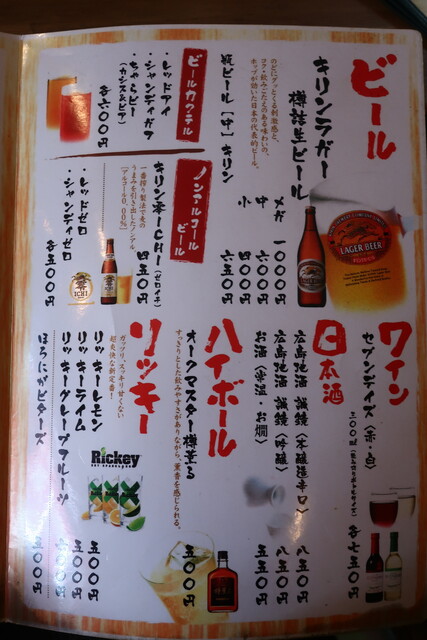 ビール
キリンラガー
樽詰生ビール
LAGER BEER
メガ 一、〇〇〇円
中 六〇〇円
小 四〇〇円
のどにグッとくる刺激感と、
コク・飲みごたえのある味わいの、
ホップが効いた日本の代表的ビール。
瓶ビール(中)キリン 六五〇円
ビールカクテル
・レッドアイ
・シャンディガフ
・ちゃらビー
(カシス&ビア)
各六〇〇円
ノンアルコール
ビール
キリン零ICHI(ゼロイチ) 四五〇円
一番搾り製法で麦の
うまみを引き出したノンアル
(アルコール0.00%)
零
ICHI
・レッドゼロ
・シャンディゼロ
各五〇〇円
ワイン
セブンデイズ(赤・白)
各七五〇円
日本酒
広島地酒 誠鏡(本醸造辛口) 五五〇円
広島地酒 誠鏡(吟醸) 八五〇円
お酒(常温・お燗) 五五〇円
ハイボール
オークマスター樽薫る 五〇〇円
すっきりとした飲みやすさがありながら、薫香を感じられる。
リッキー
ガッツリ、スッキリ甘くない
超爽快な新定番!
Rickey
リッキーレモン 五〇〇円
リッキーライム 五〇〇円
リッキーグレープフルーツ 五〇〇円
ほろにがビターズ 五〇〇円